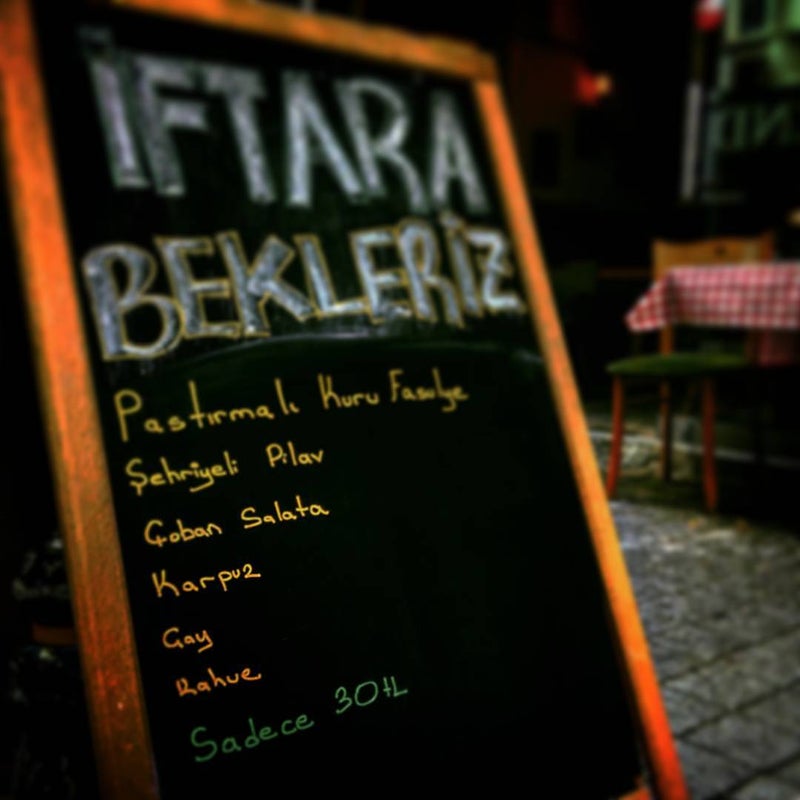 İFTARA
BEKLERİZ
Pastırmalı Kuru Fasulye
Şehriyeli Pilav
Çoban Salata
Karpuz
Çay
Kahve
Sadece 30tL